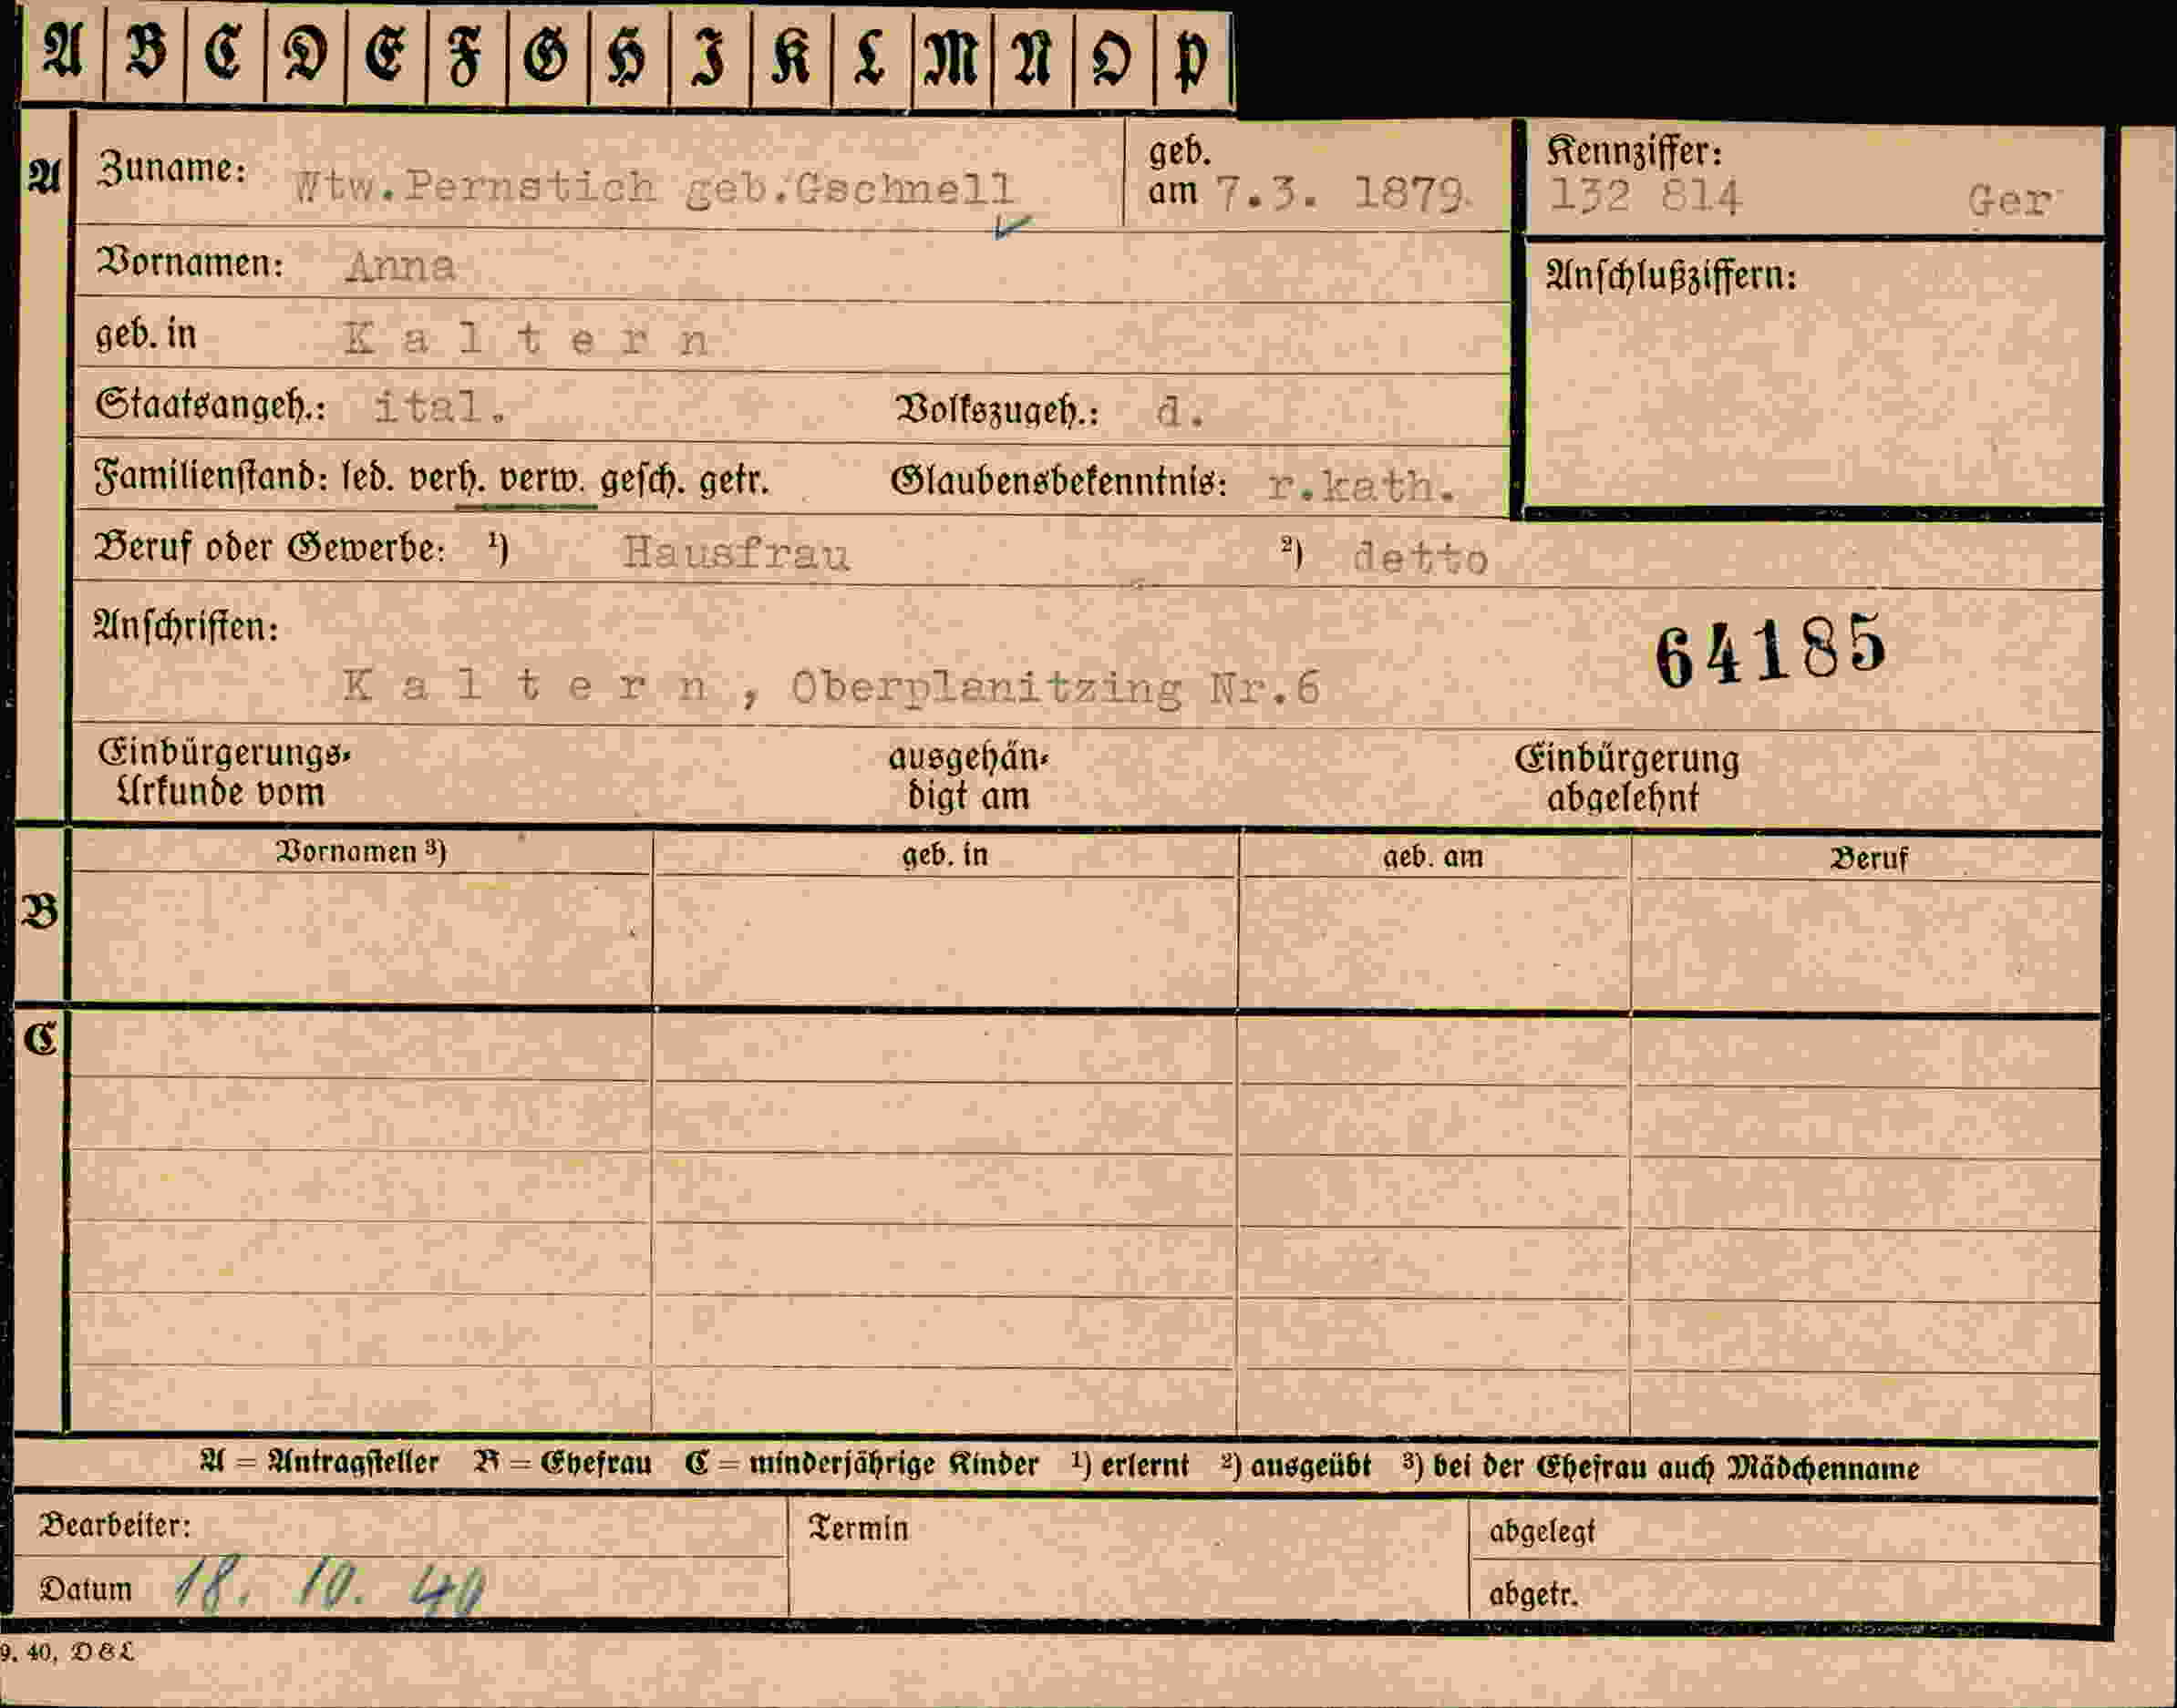 A B C D E F G H I K L M N O P
A Zuname: Wtw.Pernstich geb.Gschnell geb. am 7.3. 1879. Kennziffer: 132 814 Ger
Vornamen: Anna
Anschlußziffern:
geb. in K a l t e r n
Staatsangeh.: ital. Volkszugeh.: d.
Familienstand: led. verh. verw. gesch. getr. Glaubensbekenntnis: r.kath.
Beruf oder Gewerbe: ¹) Hausfrau ²) detto
Anschriften:
64185
K a l t e r n , Oberplanitzing Nr.6
Einbürgerungs- ausgehän- Einbürgerung
Urkunde vom digt am abgelehnt
Vornamen ³) geb. in geb. am Beruf
B
C
A = Antragsteller B = Ehefrau C = minderjährige Kinder ¹) erlernt ²) ausgeübt ³) bei der Ehefrau auch Mädchenname
Bearbeiter: Termin abgelegt
Datum 18. 10. 40 abgetr.
9. 40, D & L